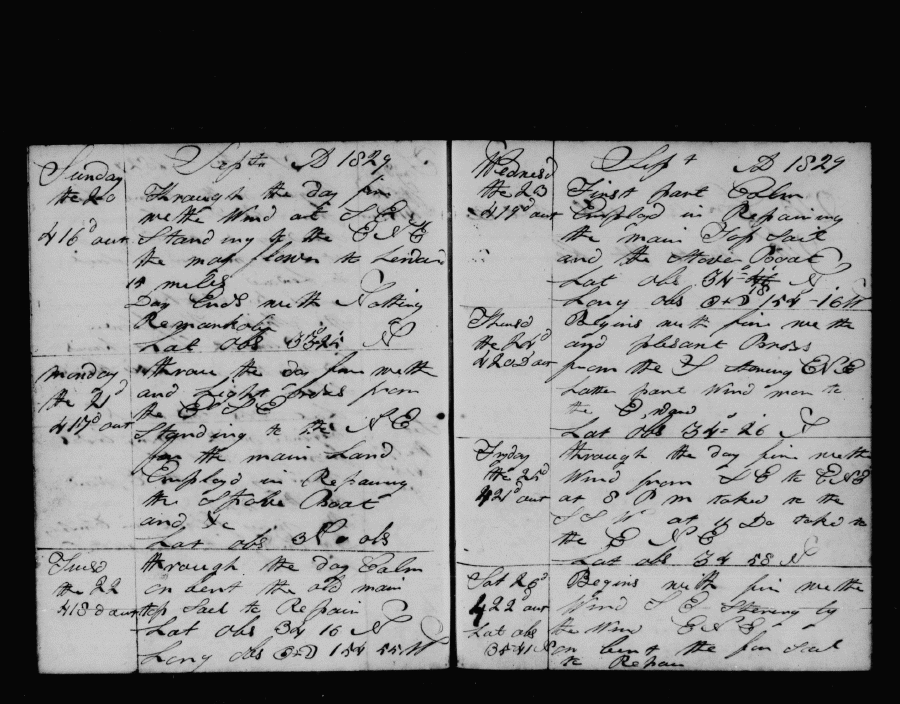 Sept AD 1829
Sunday
the 20
416d out
Through the day fine
wethe Wind at S E
Standing to the E N E
the map to
15 miles
Day Ends with Nothing
Remarkable
Lat obs N
monday
the 21d
417d out
throue the day fine weth
and Light from
the E S E
Standing to the N E
for the main Land
Employd in Repairing
the Stove Boat
and &c
Lat obs obs
Tuesd
the 22
418 d out
through the day Calm
on bent the old main
top Sail to Repair
Lat obs 34 16 N
Long obs 154 55 W
Sept AD 1829
Wednesd
the 23
419d out
First part Calm
Employd in Repairing
the main Top Sail
and the Stove Boat
Lat obs 34 N
Long obs 154-16 W
Thursd
the 24d
420d out
Begins with fine wethe
and plesant
from the S Stering E N E
Latter part Wind more to
the E
Lat obs 34° 26 N
Fryday
the 25d
421d out
through the day fine wethe
Wind from S E to E S E
at 8 P M taked to the
S S W at 4 Do taked to
the E N E
Lat obs 34 58 N
Sat 26d
422d out
Lat obs
35-41 N
Begins with fine wethe
Wind S E Stering by
the Wind E N E
on bent the fore Sail
to Repair